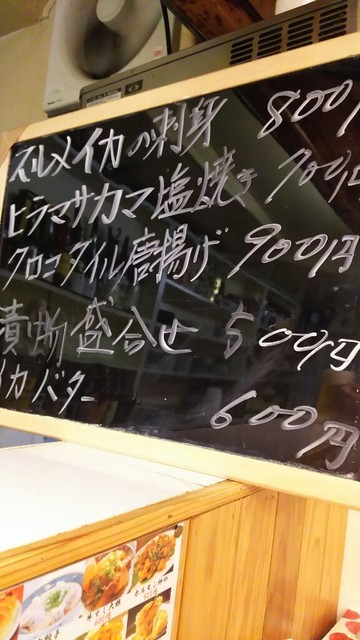 スルメイカの刺身 800円
ヒラマサカマ塩焼き 700円
クロコダイル唐揚げ 900円
漬物盛合せ 500円
イカバター 600円
ホルモン炒め